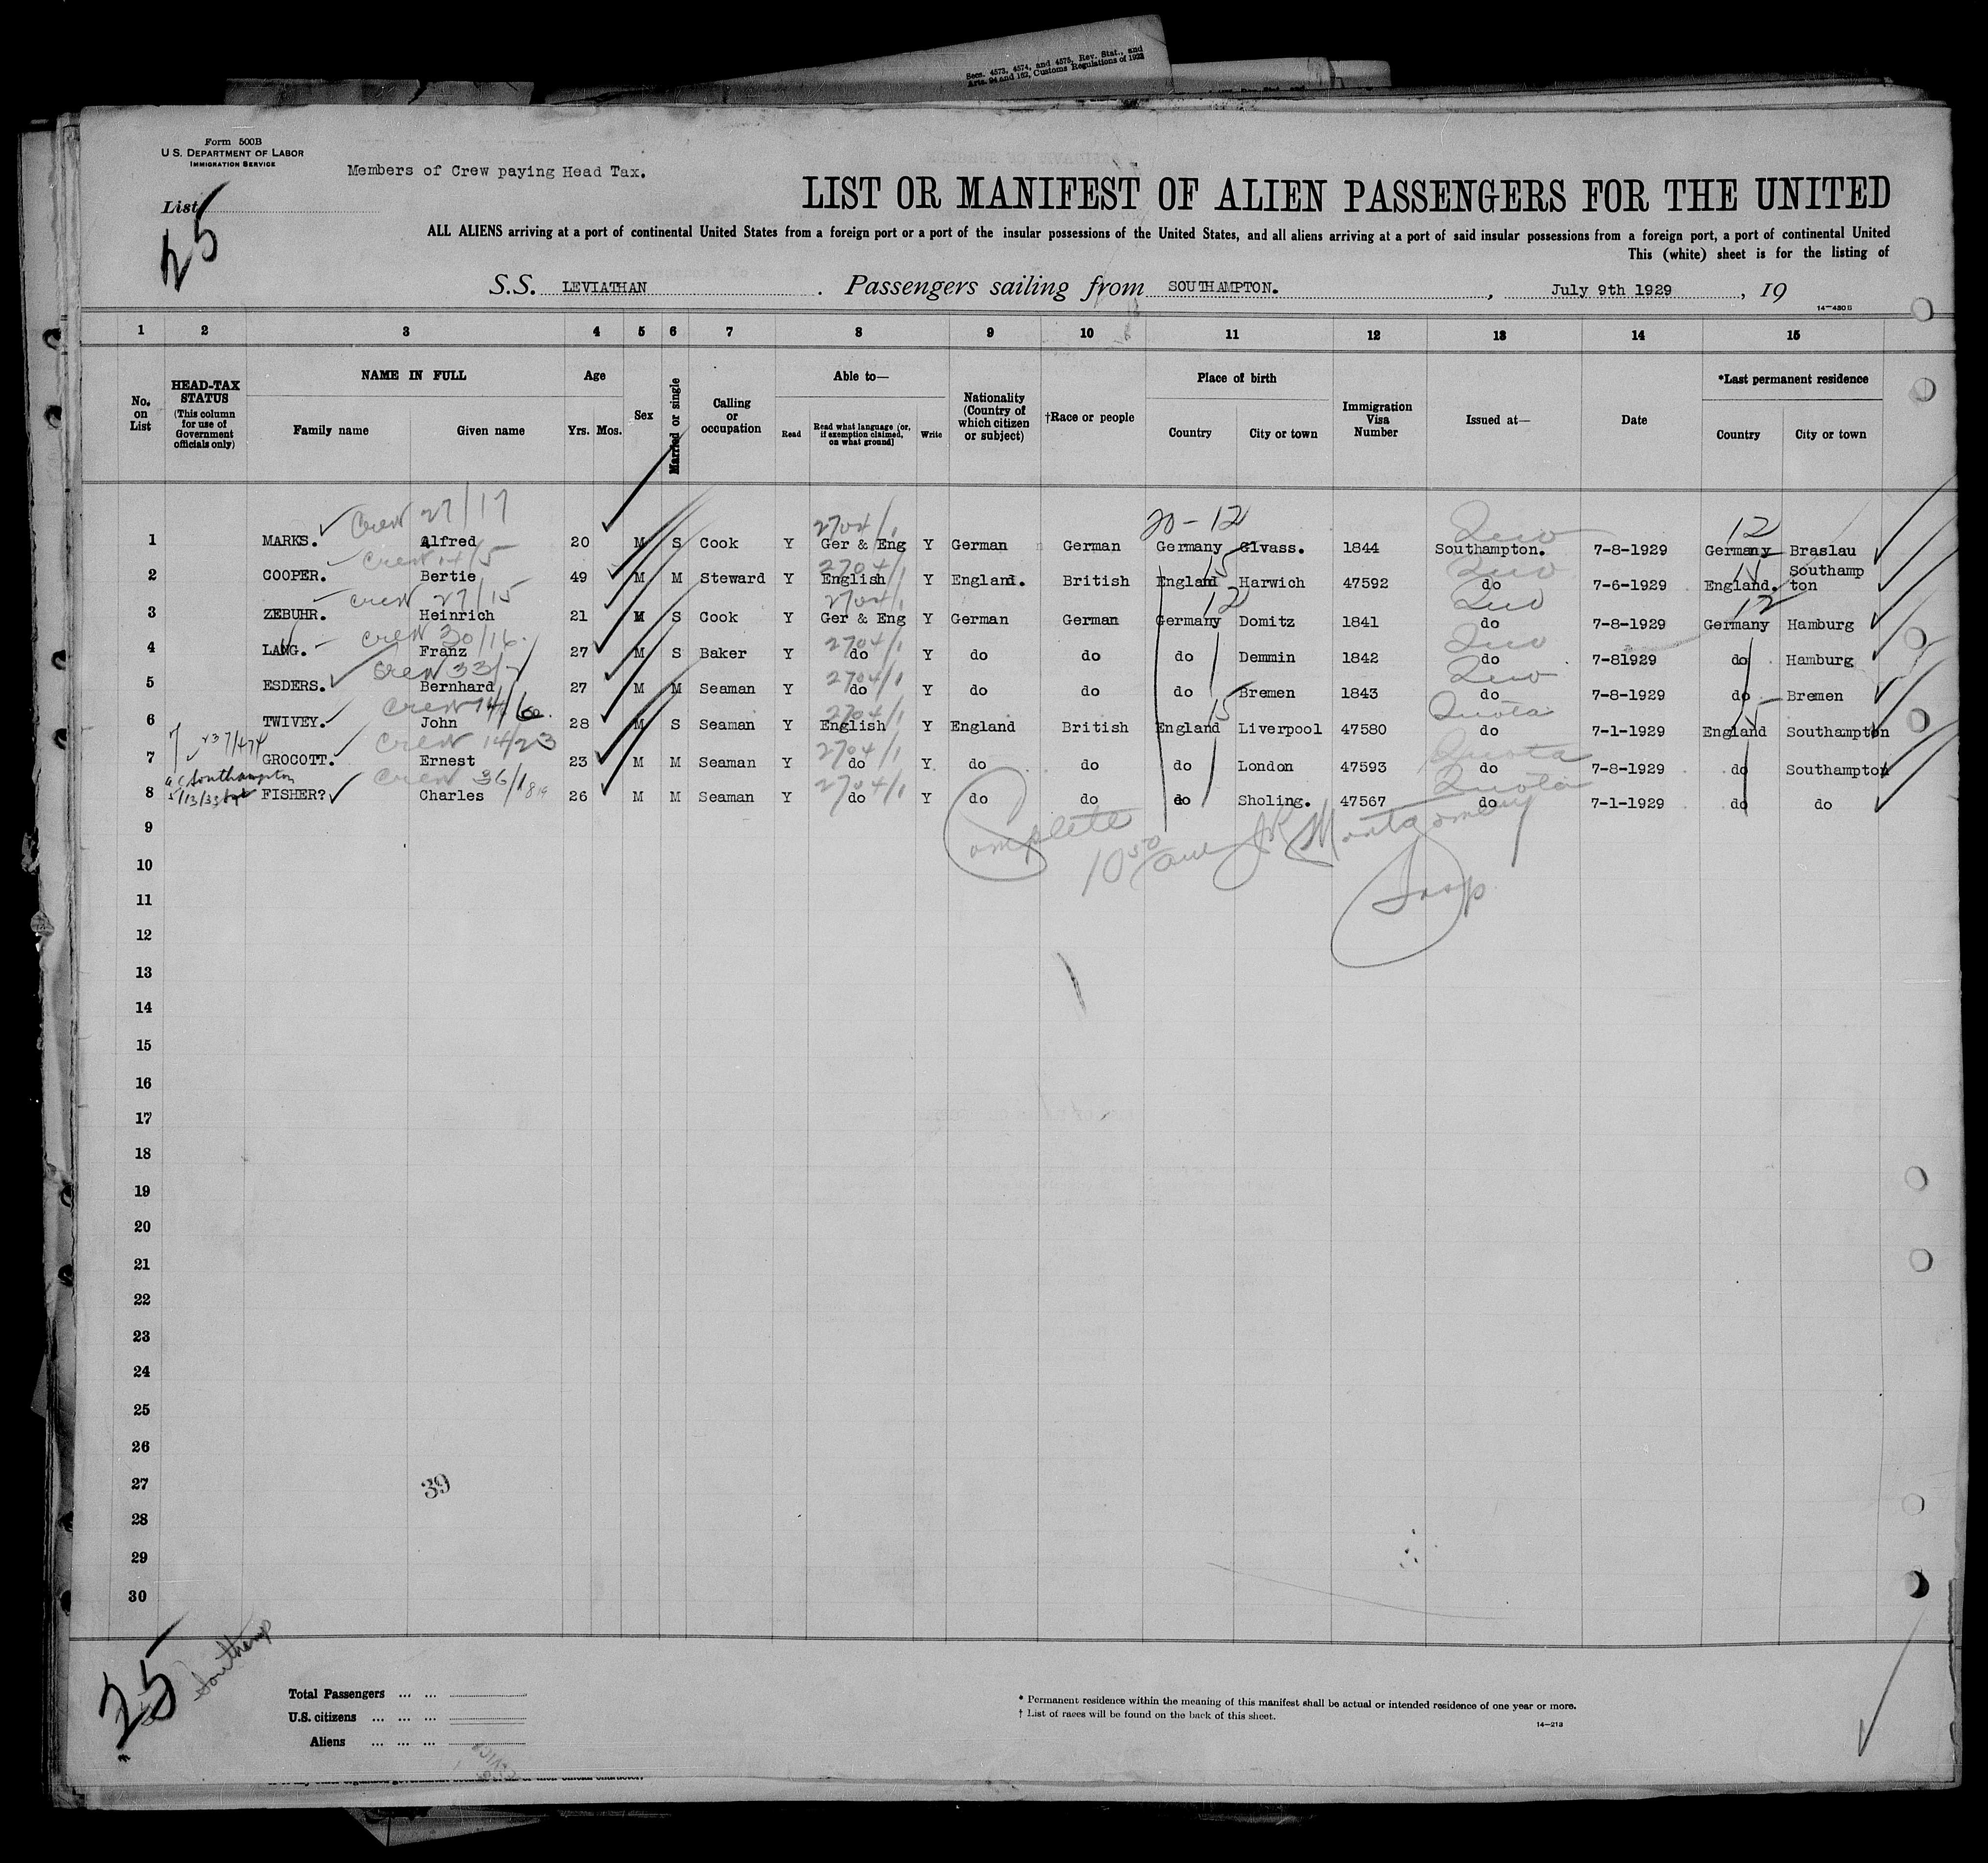 Secs. 4573, 4574, and 4575, Rev. Stat., and
Arts. 94 and 162, Customs Regulations of 1923
Form 500B
U.S. DEPARTMENT OF LABOR
IMMIGRATION SERVICE
Members of Crew paying Head Tax.
List
25
LIST OR MANIFEST OF ALIEN PASSENGERS FOR THE UNITED
ALL ALIENS arriving at a port of continental United States from a foreign port or a port of the insular possessions of the United States, and all aliens arriving at a port of said insular possessions from a foreign port, a port of continental United
This (white) sheet is for the listing of
S.S. LEVIATHAN. Passengers sailing from SOUTHAMPTON., July 9th 1929, 19
14-430B
1 2 3 4 5 6 7 8 9 10 11 12 13 14 15
No. on List
HEAD-TAX STATUS (This column for use of Government officials only)
NAME IN FULL Family name Given name
Age Yrs. Mos.
Sex
Married or single
Calling or occupation
Able to— Read Read what language [or, if exemption claimed, on what ground] Write
Nationality (Country of which citizen or subject)
†Race or people
Place of birth Country City or town
Immigration Visa Number
Issued at—
Date
*Last permanent residence Country City or town
Crew 27/17 2704/1 20-12 Quo 12
1 MARKS. Alfred 20 M S Cook Y Ger & Eng Y German German Germany Glvass. 1844 Southampton. 7-8-1929 Germany Braslau
Crew 14/5 2704/1 15 Quo
2 COOPER. Bertie 49 M M Steward Y English Y England. British England Harwich 47592 do 7-6-1929 England. Southampton
Crew 27/15 2704/1 12 Quo 12
3 ZEBUHR. Heinrich 21 M S Cook Y Ger & Eng Y German German Germany Domitz 1841 do 7-8-1929 Germany Hamburg
Crew 30/16 2704/1 Quo
4 LANG. Franz 27 M S Baker Y do Y do do do Demmin 1842 do 7-81929 do Hamburg
Crew 33/7 2704/1 Quo
5 ESDERS. Bernhard 27 M M Seaman Y do Y do do do Bremen 1843 do 7-8-1929 do Bremen
Crew 14/6 2704/1 15 Quota
6 TWIVEY. John 28 M S Seaman Y English Y England British England Liverpool 47580 do 7-1-1929 England Southampton
Crew 14/23 2704/1 Quota
7 GROCOTT. Ernest 23 M M Seaman Y do Y do do do London 47593 do 7-8-1929 do Southampton
Southampton Crew 36/18 2704/1 Quota
8 FISHER? Charles 26 M M Seaman Y do Y do do do Sholing. 47567 do 7-1-1929 do do
Complete
10 50 am JR Montgomery
Insp
9
10
11
12
13
14
15
16
17
18
19
20
21
22
23
24
25
26
27
39
28
29
30
25
Southamp
Total Passengers
U.S. citizens
Aliens
* Permanent residence within the meaning of this manifest shall be actual or intended residence of one year or more.
† List of races will be found on the back of this sheet.
14-213